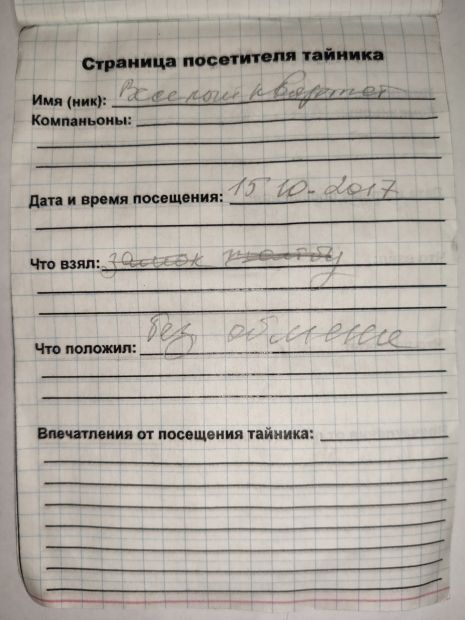 Страница посетителя тайника
Имя (ник): Веселый квартет
Компаньоны:
Дата и время посещения: 15 10. 2017
Что взял: замок
Что положил: Без обмена
Впечатления от посещения тайника: